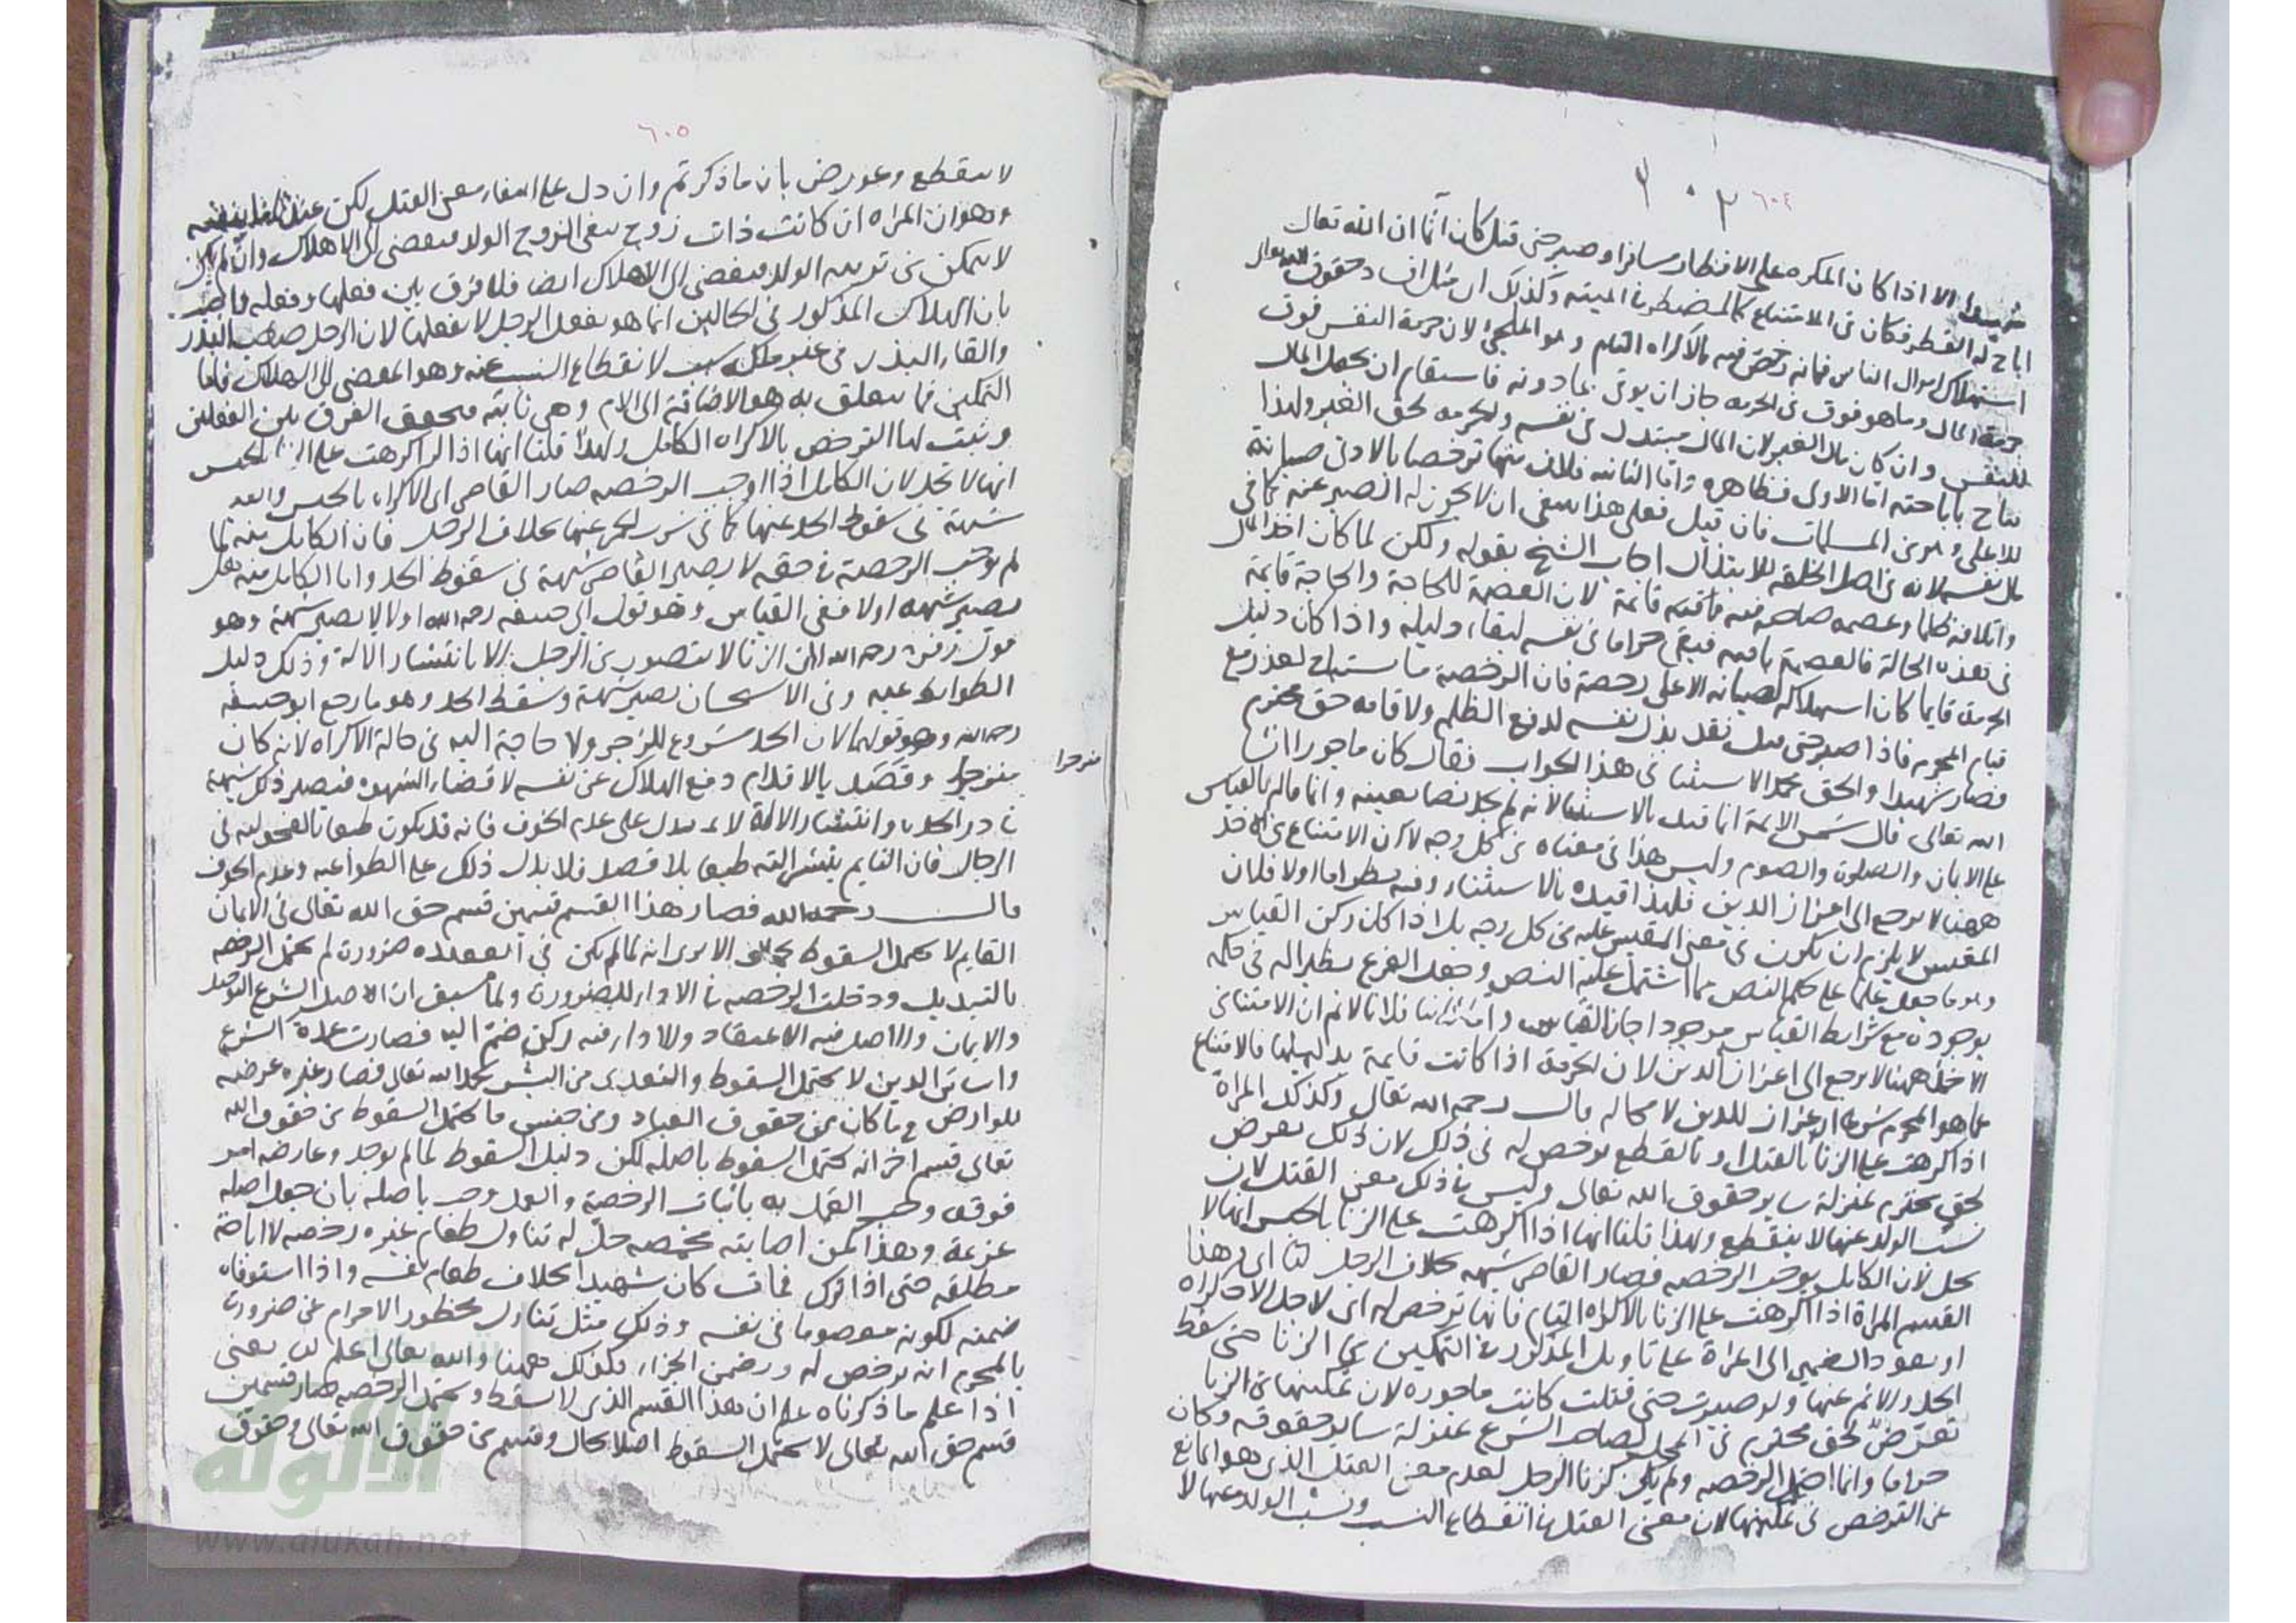 ٦٠٤
شهيدا الا اذا كان المكره على الافطار مسافرا وصبر حتى قتل كان آثما ان الله تعالى
اباح له الفطر فكان في الامتناع كالمضطر في الميته وكذلك ان
استهلاك اموال الناس فانه رخص فيه بالاكراه التام وهو الملجئ لان حرمة النفس فوق
حرمة المال وما هو فوق في الحرمه جاز ان يوقى بما دونه فاستقام ان يجعل المال
للنفس وان كان مال الغير لان المال مبتذل في نفسه والحرمه لحق الغير ولهذا
تباح باباحته اما الاولى فظاهره واما الثانيه فلان فيها ترخصا بالادنى صيانة
للاعلى وهو من المسلمات فان قيل فعلى هذا ينبغي ان لا يجوز له الصبر عنه كما في
مال نفسه لانه في اصل الخلقه للابتذال اجاب الشيخ بقوله ولكن لما كان اخذ المال
واتلافه ظلما وعصمه صاحبه فيه قائمة لان العصمة للحاجة والحاجة قائمة
في هذه الحالة فالعصمة باقيه فبقي حراما في نفسه لبقاء دليله واذا كان دليل
الحرمة قايما كان استهلاكه لصيانه الاعلى رخصة فان الرخصة ما استباح لعذر مع
قيام المحرم فاذا صبر حتى قتل فقد بذل نفسه لدفع الظلم ولاقامه حق محترم
فصار شهيدا والحق محمد الاستثنا في هذا الجواب فقال كان ماجورا ان شا
الله تعالى قال شمس الايمة انما قيد بالاستثنا لانه لم يجد نصا بعينه وانما قاله بالقياس
على الايمان والصلوة والصوم وليس هذا في معناه من كل وجه لان الامتناع من الاخذ
ههنا لا يرجع الى اعزاز الدين فلهذا قيده بالاستثناء وفيه نظر اما اولا فلان
المقيس لا يلزم ان يكون في معنى المقيس عليه من كل وجه بل اذا كان ركن القياس
وهو ما جعل علما على حكم النص مما اشتمل عليه النص وجعل الفرع نظيرا له في حكمه
بوجوده مع شرايط القياس موجودا جاز القياس واما ثانيا فلانا لا نم ان الامتناع من
الاخذ ههنا لا يرجع الى اعزاز الدين لان الحرمة اذا كانت قايمة بدليلها فالامتناع
عما هو المحرم شرعا اعزاز للدين لا محاله قال رحمه الله تعالى وكذلك المراة
اذا اكرهت على الزنا بالقتل او بالقطع يرخص لها في ذلك لان ذلك تعرض
لحق محترم بمنزلة ساير حقوق الله تعالى وليس في ذلك معنى القتل لان
نسب الولد عنها لا ينقطع ولهذا قلنا انها اذا اكرهت على الزنا بالحبس انها لا
تحد لان الكامل يوجب الرخصه فصار القاصر شبهه بخلاف الرجل اي هذا
القسم المراة اذا اكرهت على الزنا بالاكراه التام فانها ترخص له اي لاجل الاكراه
او يعود الضمير الى المراة على تاويل المذكور في التمكين من الزنا حتى سقط
الحد والاثم عنها ولو صبرت حتى قتلت كانت ماجوره لان تمكينها من الزنا
تعرض لحق محترم في المحل لصاحب الشرع بمنزلة ساير حقوقه وكان
حراما وانما احتمل الرخصه ولم يكن كزنا الرجل لعدم معنى القتل الذي هو المانع
عن الترخص في تمكينها لان معنى القتل في انقطاع النسب ونسب الولد عنها لا
٦٠٥
لا ينقطع وعورض بان ما ذكرتم وان دل على انتفاء معنى القتل لكن عندنا ما ينفيه
وهو ان المراه ان كانت ذات زوج ينفي الزوج الولد فيفضي الى الاهلاك وان لم يكن
لا يتمكن من تربيه الولد فيفضي الى الاهلاك ايضا فلا فرق بين فعلها وفعله واجيب
بان الهلاك المذكور في الحالين انما هو بفعل الرجل لا بفعلها لان الرجل صاحب البذر
والقاء البذر في غير ملكه سبب لانقطاع النسب عنه وهو المفضي الى الهلاك فاما
التمكين فما يتعلق به هو الاضافة الى الام وهي ثابته فتحقق الفرق بين الفعلين
وثبت لها الترخص بالاكراه الكامل ولهذا قلنا انها اذا اكرهت على الزنا بالحبس
انها لا تحد لان الكامل اذا اوجب الرخصه صار القاصر اي الاكراه بالحبس والقيد
شبهة في سقوط الحد عنها كما في شرب الخمر عنها بخلاف الرجل فان الكامل منه لما
لم يوجب الرخصة في حقه لا يصير القاصر شبهة في سقوط الحد واما الكامل منه هل
يصير شبهه اولا ففي القياس وهو قول ابي حنيفه رحمه الله اولا لا يصير شبهة وهو
قول زفر رحمه الله لان الزنا لا يتصور من الرجل الا بانتشار الالة وذلك دليل
الطواعيه وفي الاستحسان يصير شبهة وسقط الحد وهو ما رجع ابو حنيفه
رحمه الله وهو قولهما لان الحد مشروع للزجر ولا حاجة اليه في حالة الاكراه لانه كان
منزجرا
منزجرا وقصد بالاقدام دفع الهلاك عن نفسه لا قضاء الشهوه فيصير ذلك شبهة
في درا الحد وانتشار الالة لا يدل على عدم الخوف فانه قد يكون طبعا بالفحوليه في
الرجال فان النايم ينتشر الته طبعا بلا قصد فلا يدل ذلك على الطواعيه وعدم الخوف
قال رحمه الله فصار هذا القسم قسمين قسم حق الله تعالى في الايمان
القايم لا يحتمل السقوط بحال الا يرى انه لما لم يكن في العقيده ضرورة لم يحتمل الرخصه
بالتبديل ودخلت الرخصه في الاداء للضرورة ولما سبق ان الاصل في الشرع التوحيد
والايمان والاصل فيه الاعتقاد والاداء فيه ركن ضم اليه فصارت عمدة الشرع
واساس الدين لا يحتمل السقوط والتعدي من البشر بحمد الله تعالى فصار غيره عرضه
للعوارض وما كان من حقوق العباد ومن جنس ما يحتمل السقوط من حقوق الله
تعالى قسم اخر انه يحتمل السقوط باصله لكن دليل السقوط لما لم يوجد وعارضه امر
فوقه وجب العمل به باثبات الرخصة والعمل وجب باصله بان جعل اصله
عزيمة وهذا كمن اصابته مخمصه حل له تناول طعام غيره رخصه لا اباحة
مطلقه حتى اذا ترك فمات كان شهيدا بخلاف طعام نفسه واذا استوفاه
ضمنه لكونه معصوما في نفسه وذلك مثل تناول محظور الاحرام عن ضرورة
بالمحرم انه يرخص له ويضمن الجزاء فكذلك ههنا والله تعالى اعلم يعني
اذا علم ما ذكرناه علم ان هذا القسم الذي لا يسقط ويحتمل الرخصه صار قسمين
قسم حق الله تعالى لا يحتمل السقوط اصلا بحال وقسم من حقوق الله تعالى وحقوق
الألوكة
www.alukah.net